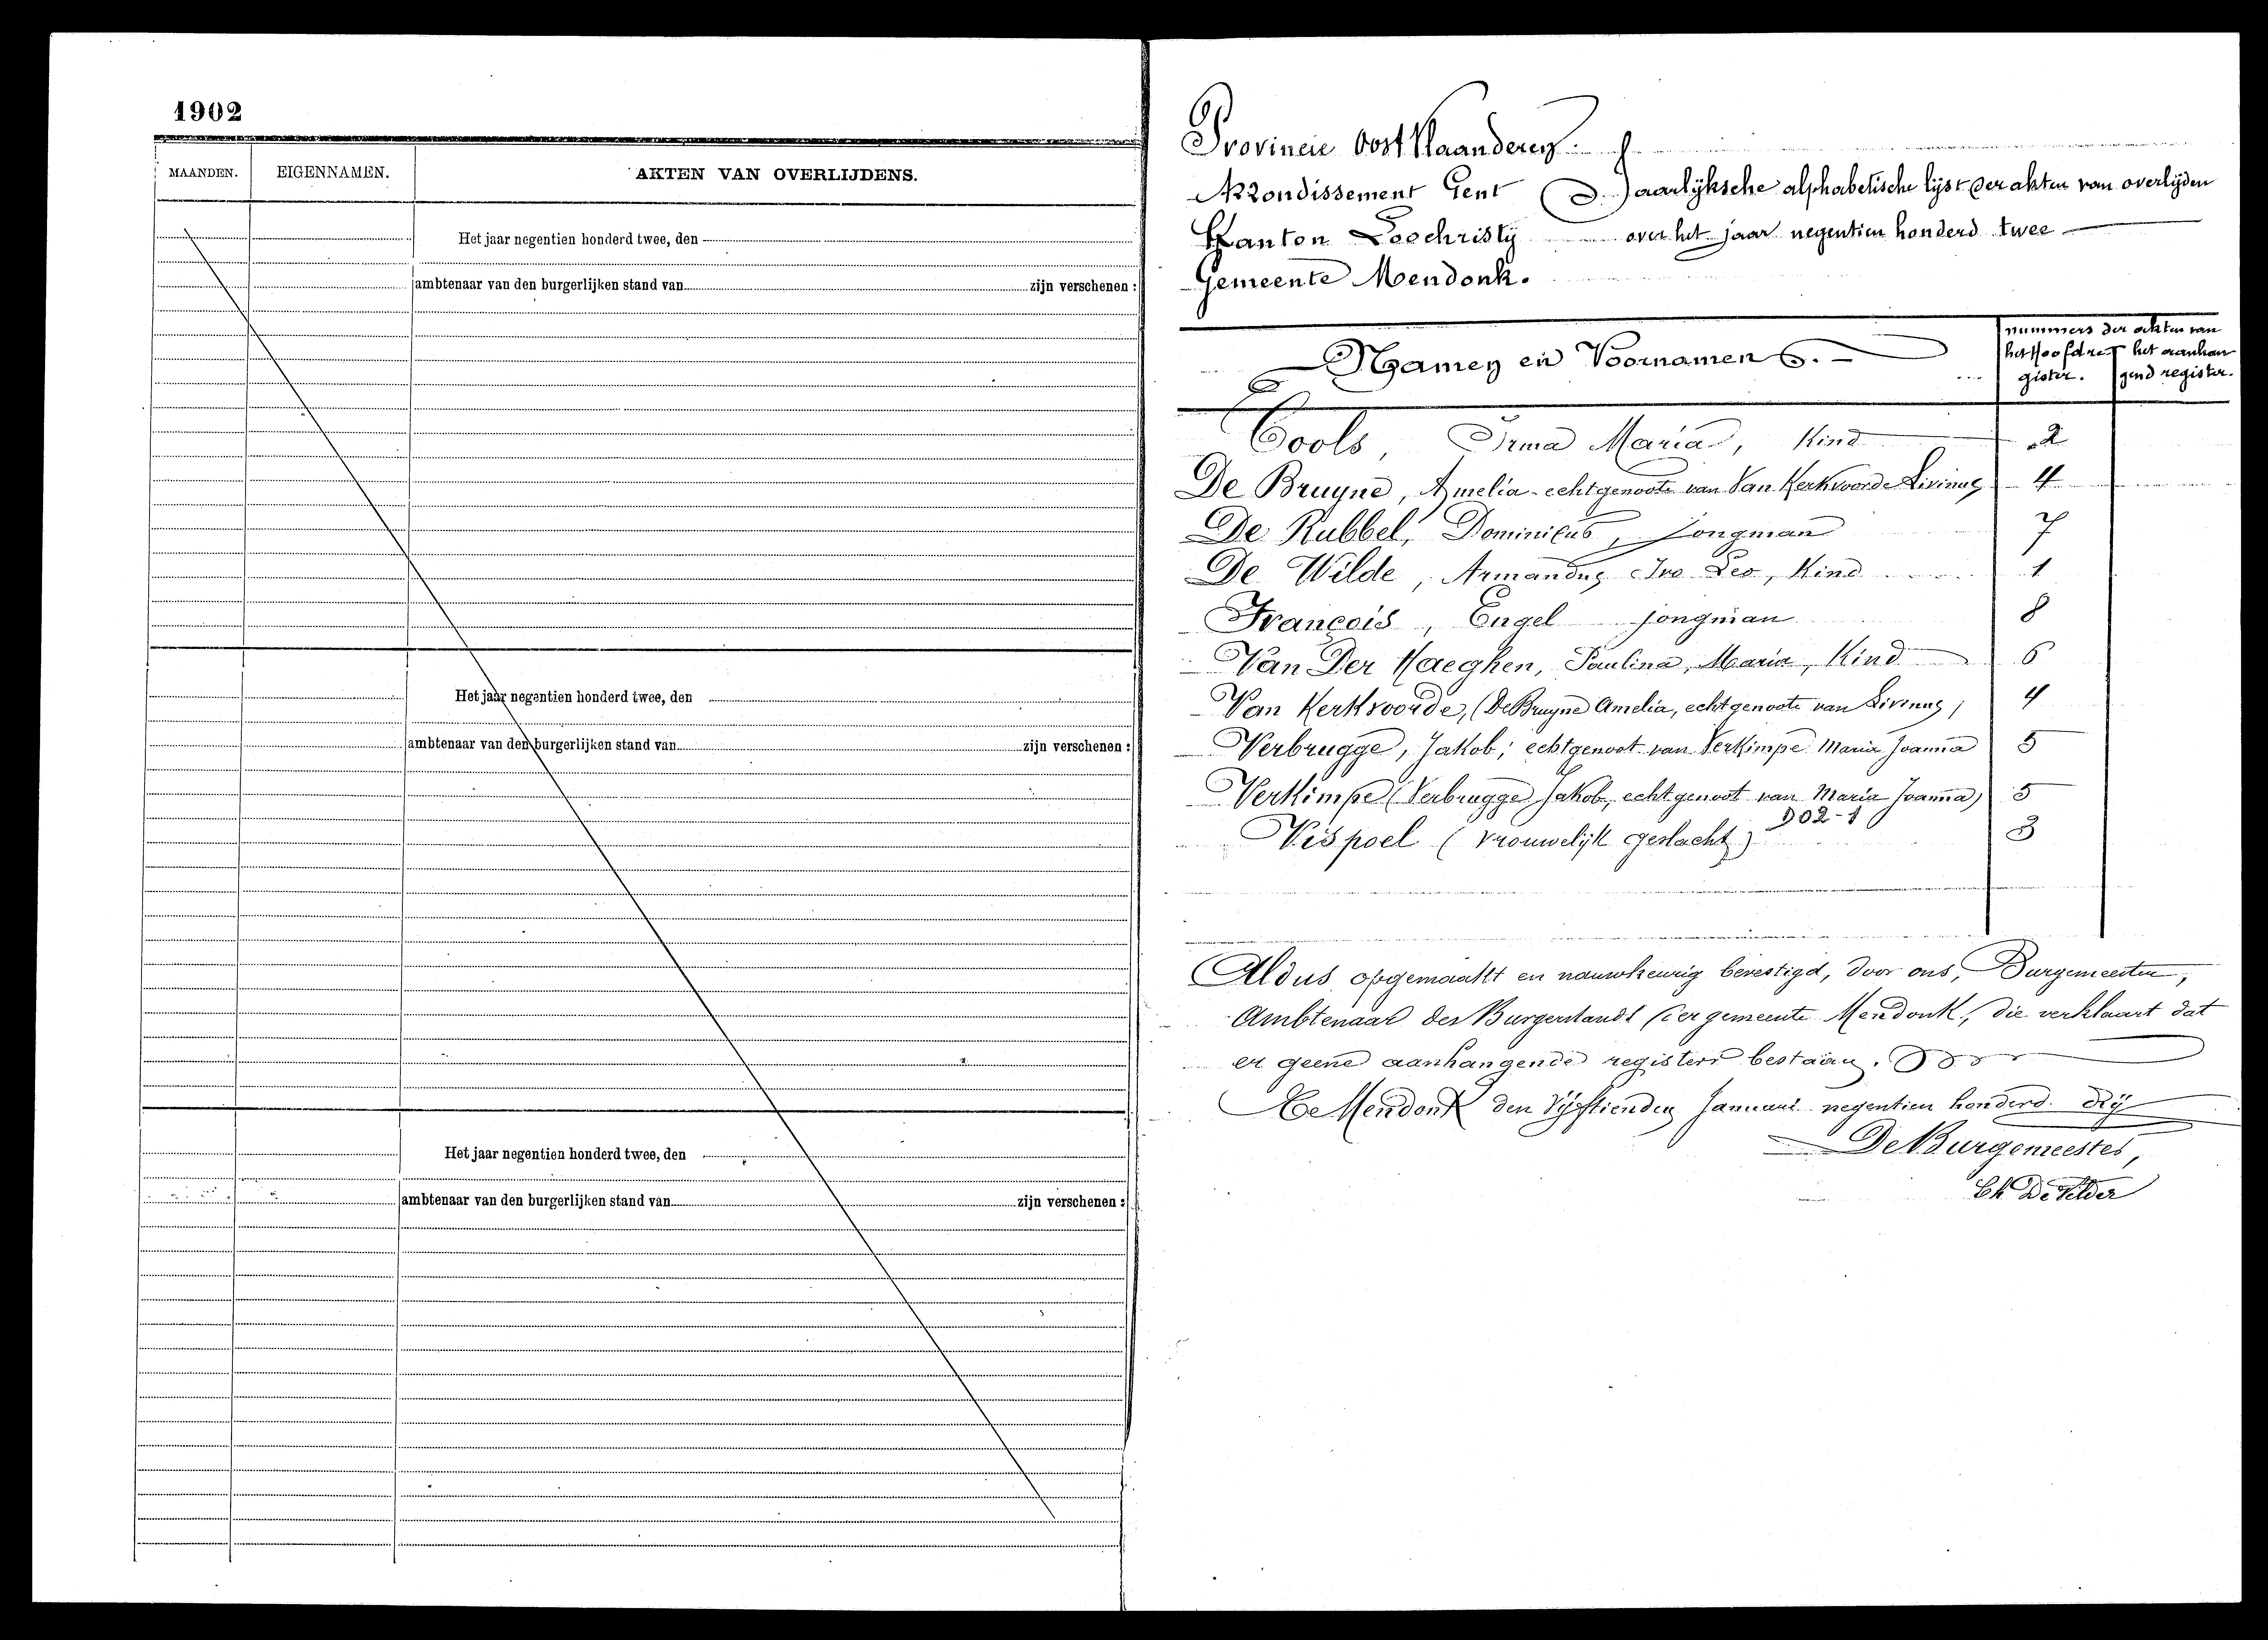 1902
MAANDEN. EIGENNAMEN. AKTEN VAN OVERLIJDENS.
Het jaar negentien honderd twee, den
ambtenaar van den burgerlijken stand van zijn verschenen :
Het jaar negentien honderd twee, den
ambtenaar van den burgerlijken stand van zijn verschenen :
Het jaar negentien honderd twee, den
ambtenaar van den burgerlijken stand van zijn verschenen :
Provincie Oost Vlaanderen.
Arrondissement Gent Jaarlijksche alphabetische lijst der akten van overlijden
Kanton Loochristy over het jaar negentien honderd twee
Gemeente Mendonk.
Namen en Voornamen
nummers der akten van
het Hoofdre het aanhan
gister. gend register.
Cools, Irma Maria, Kind 2
De Bruyne, Amelia echtgenoote van Van Kerkvoorde Livinus 4
De Rubbel, Dominicus, Jongman 7
De Wilde, Armandus Ivo Leo, Kind 1
François, Engel jongman 8
Van Der Haeghen, Paulina, Maria, Kind 6
Van Kerkvoorde, (De Bruyne Amelia, echtgenoote van Livinus) 4
Verbrugge, Jakob, echtgenoot van Verkimpe Maria Joanna 5
Verkimpe (Verbrugge Jakob, echtgenoot van Maria Joanna) 5
D02-1
Vispoel (vrouwelijk geslacht) 3
Aldus opgemaakt en nauwkeurig bevestigd, door ons, Burgemeester,
Ambtenaar des Burgerstands der gemeente Mendonk, die verklaart dat
er geene aanhangende registers bestaan.
Te Mendonk den Vijftienden Januari negentien honderd drij
De Burgemeester,
Ch De